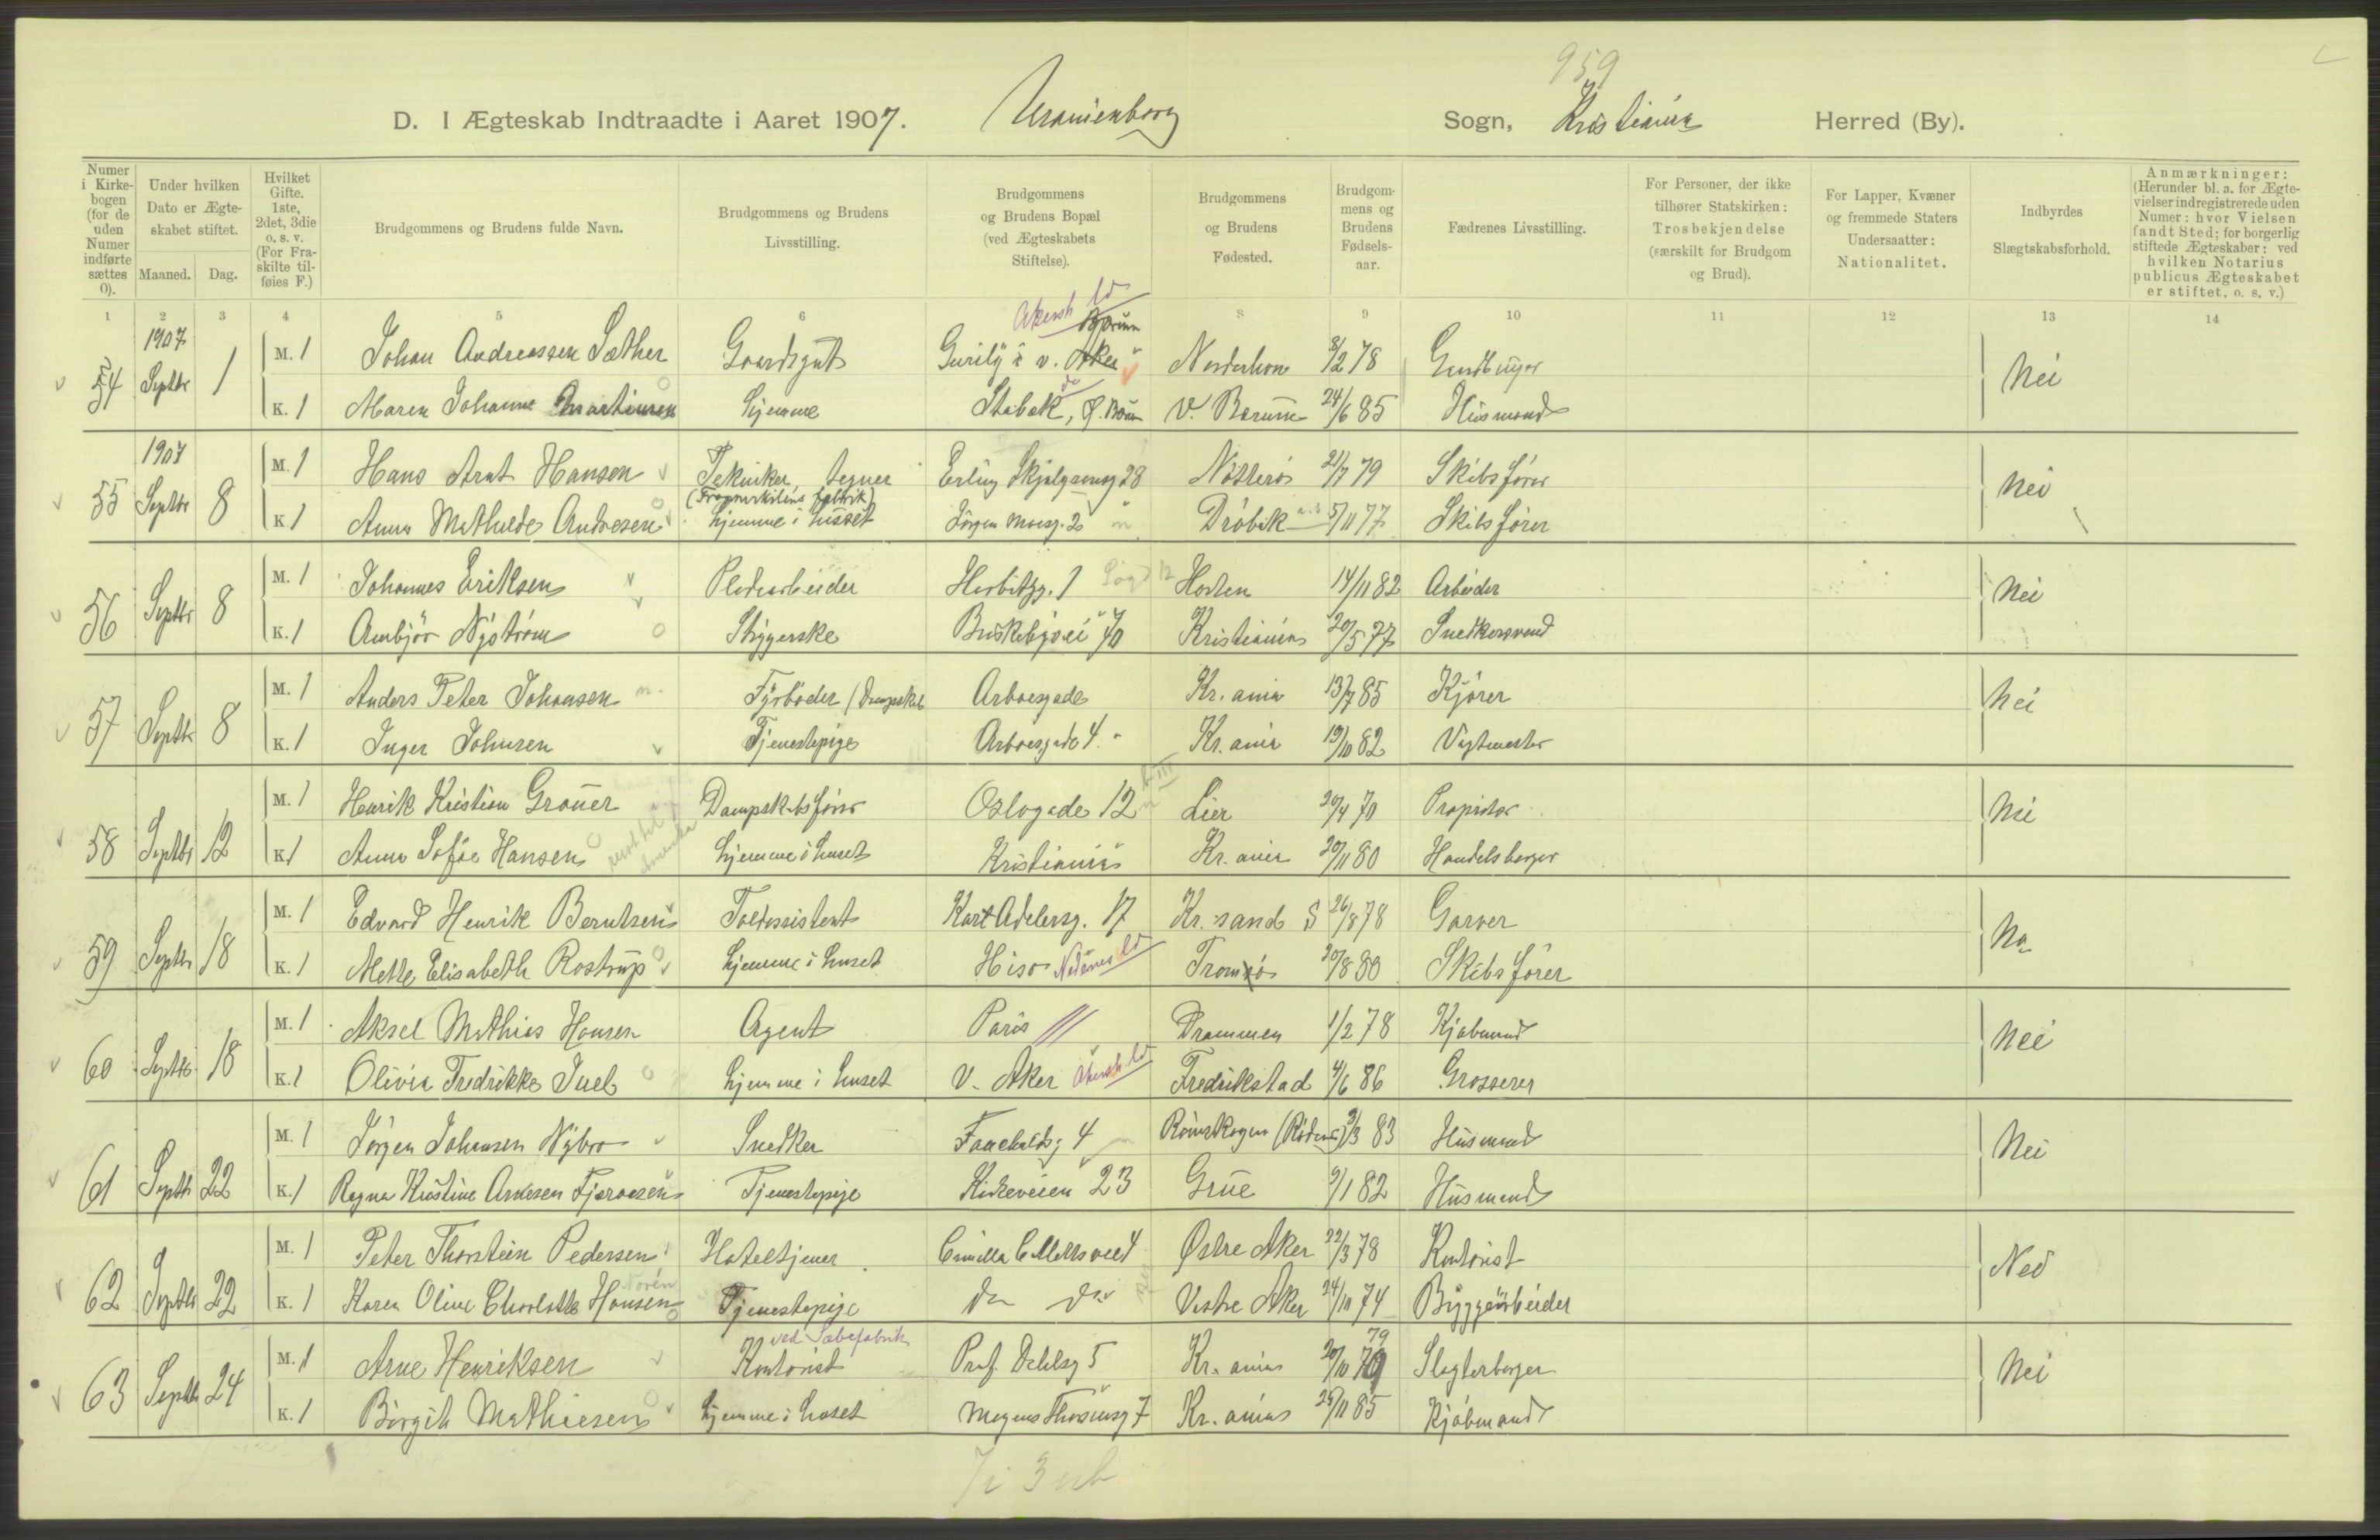 959
D. I Ægteskab Indtraadte i Aaret 1907. Uranienborg Sogn, Kristiania Herred (By).
Numer i Kirkebogen (for de uden Numer indførte sættes 0).
Under hvilken Dato er Ægteskabet stiftet.
Maaned. Dag.
Hvilket Gifte. 1ste, 2det, 3die o. s. v. (For Fraskilte tilføies F.)
Brudgommens og Brudens fulde Navn.
Brudgommens og Brudens Livsstilling.
Brudgommens og Brudens Bopæl (ved Ægteskabets Stiftelse).
Brudgommens og Brudens Fødested.
Brudgommens og Brudens Fødselsaar.
Fædrenes Livsstilling.
For Personer, der ikke tilhører Statskirken: Trosbekjendelse (særskilt for Brudgom og Brud).
For Lapper, Kvæner og fremmede Staters Undersaatter: Nationalitet.
Indbyrdes Slægtskabsforhold.
Anmærkninger: (Herunder bl. a. for Ægtevielser indregistrerede uden Numer: hvor Vielsen fandt Sted; for borgerlig stiftede Ægteskaber: ved hvilken Notarius publicus Ægteskabet er stiftet, o. s. v.)
1 2 3 4 5 6 8 9 10 11 12 13 14
Akersh
1907
54 Septbr 1 M. 1 Johan Andreassen Sæther Gaardsgut v. Aker Norderhov 8/2 78 Nei
K. 1 Maren Johanne Martinsen hjemme Stabæk, V. Bærum 24/6 85 Husmand
1907
55 Septbr 8 M. 1 Hans Arnt Hansen Tekniker, tegner Erling Skjalgsønsg 28 Nøtterø 21/7 79 Skibsfører Nei
K. 1 Anna Mathilde Andresen hjemme i huset Jörgen Moesg. 2 Dröbak 5/11 77 Skibsfører
56 Septbr 8 M. 1 Johannes Eriksen Pladearbeider 1 Horten 14/11 82 Arbeider Nei
K. 1 Arnbjör Nyström Strygerske Briskebyvei 70 Kristiania 20/5 77 Snedkersvend
57 Septbr 8 M. 1 Anders Peter Johansen Fyrbøder (Dampskib Arboesgade Kr.ania 13/7 85 Kjörer Nei
K. 1 Inger Johnsen Tjenestepige Arboesgade 4. Kr.ania 19/10 82 Vagtmester
58 Septbr 12 M. 1 Henrik Kristian Grøner Dampskibsfører Oslogade 12 Lier 20/4 70 Proprietær Nei
K. 1 Anna Sofie Hansen hjemme i huset Kristiania Kr.ania 20/11 80 Handelsborger
59 Septbr 18 M. 1 Edvard Henrik Berntsen Toldassistent Kort Adelersg. 17 Kr.sand S 26/8 78 Garver
K. 1 Mette Elisabeth Rostrup hjemme i huset Hisø Nedenes Tromsø 20/8 80 Skibsfører
60 Septbr 18 M. 1 Aksel Mathias Hansen Agent Paris Drammen 1/2 78 Kjøbmand Nei
K. 1 Olivia Fredrikke Juel hjemme i huset V. Aker Akersh Fredrikstad 4/6 86 Grosserer
61 Septbr 22 M. 1 Jörgen Johansen Nybro Snedker Fauchaldsg 4 Römskogen (Rødenes) 83 Husmand Nei
K. 1 Ragna Kristine Arnesen Tjenestepige Kirkeveien 23 Grue 9/1 82 Husmand
62 Septbr 22 M. 1 Peter Thorstein Pedersen Hoteltjener Camilla Collettsvei 4 Østre Aker 22/3 78 Kontorist Nei
Norén
K. 1 Karen Oline Charlotte Hansen Tjenestepige do do Vestre Aker 24/10 74 Byggearbeider
ved Sæbefabrik 79
63 Septbr 24 M. 1 Arne Henriksen Kontorist Prof. Dahlsg 5 Kr.ania 20/10 79 Slagterborger Nei
K. 1 Birgit Mathiesen hjemme i huset Mogens Thorsensg 7 Kr.ania 25/11 85 Kjøbmand